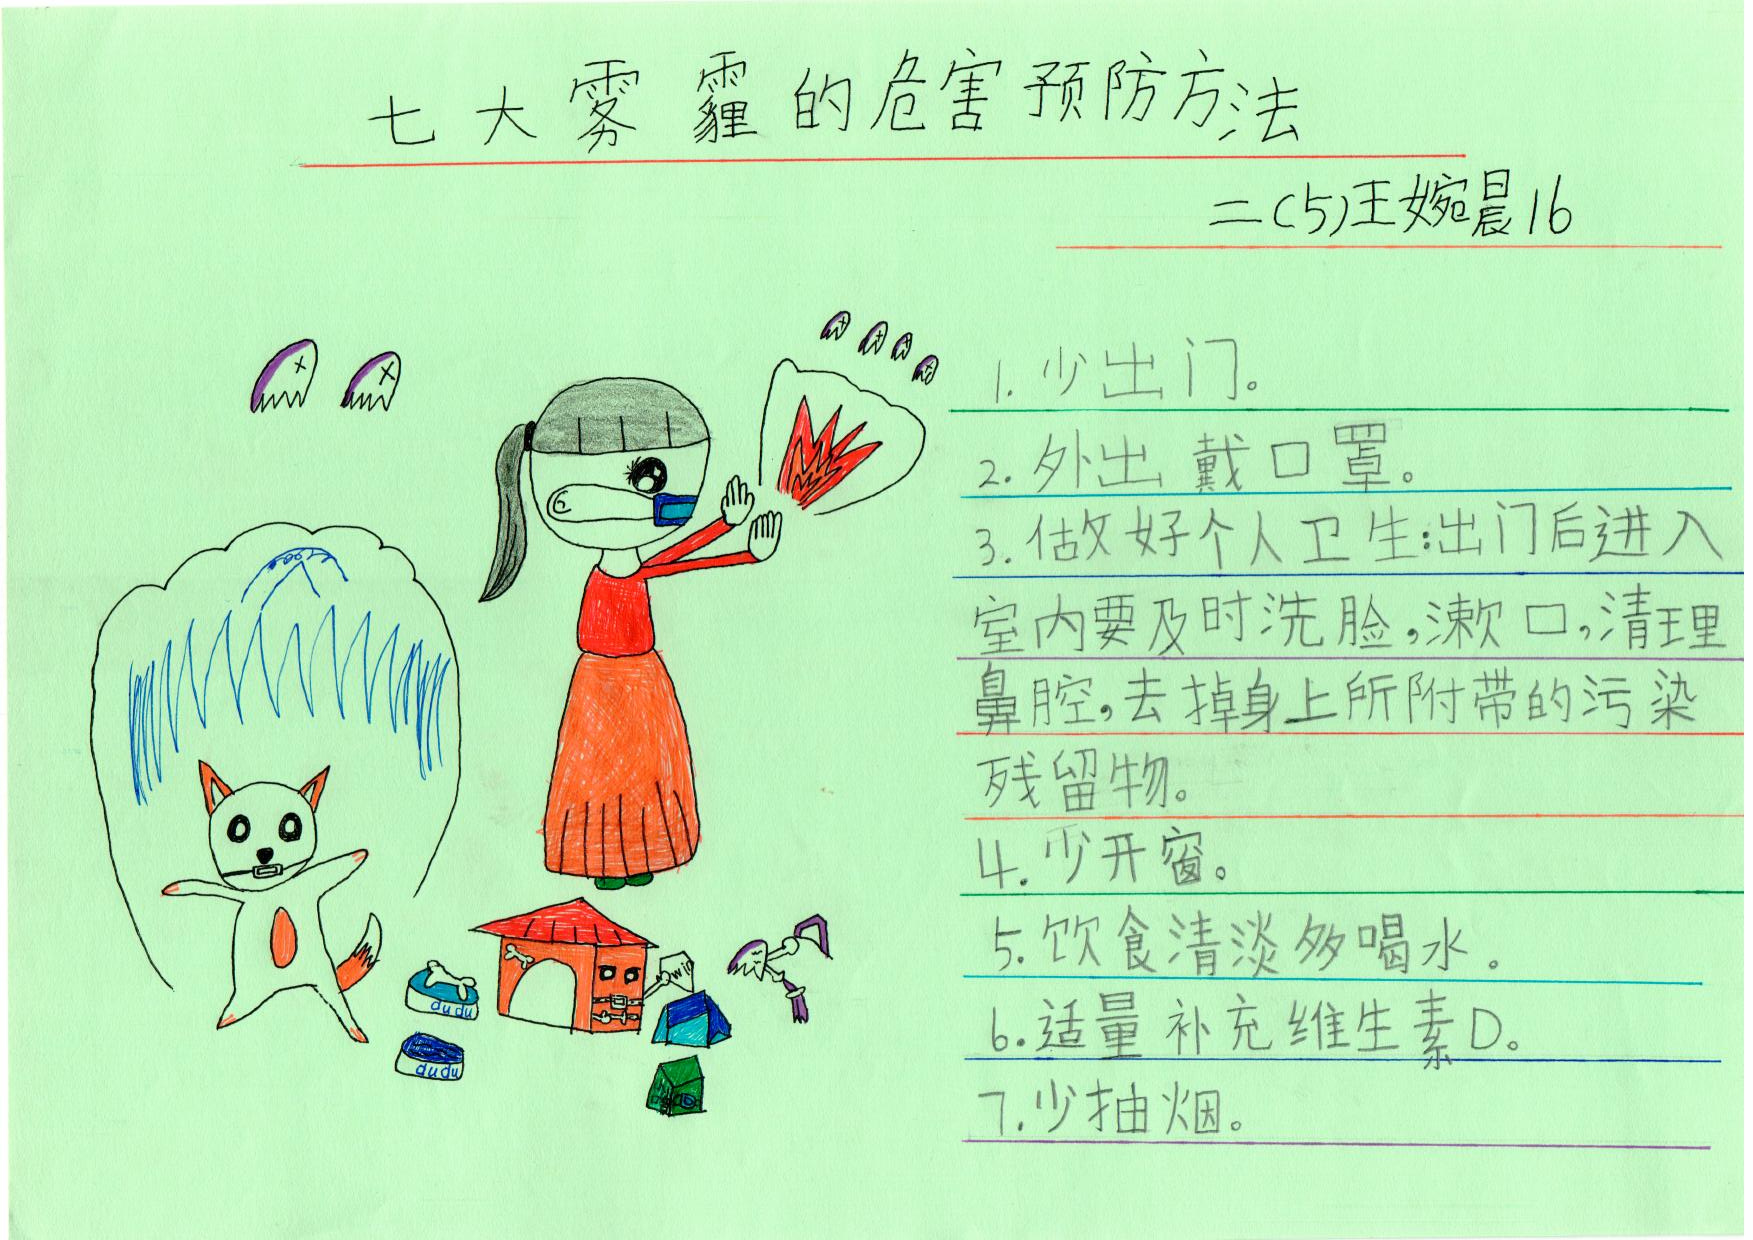 七大雾霾的危害预防方法
二(5)王婉晨16
1.少出门。
2.外出戴口罩。
3.做好个人卫生:出门后进入
室内要及时洗脸,漱口,清理
鼻腔,去掉身上所附带的污染
残留物。
4.少开窗。
5.饮食清淡多喝水.
6.适量补充维生素D。
7.少抽烟。
dudu
dudu